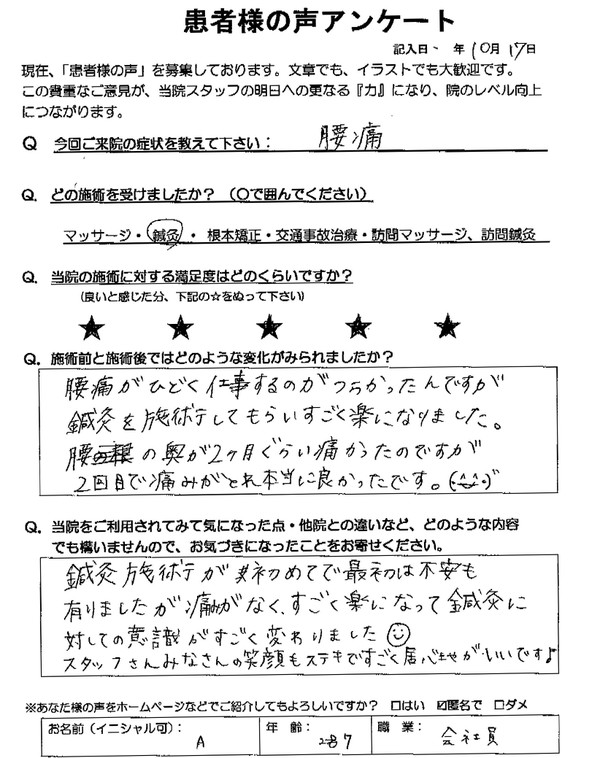 患者様の声アンケート
記入日 年 10月 17日
現在、「患者様の声」を募集しております。文章でも、イラストでも大歓迎です。
この貴重なご意見が、当院スタッフの明日への更なる『力』になり、院のレベル向上
につながります。
Q 今回ご来院の症状を教えて下さい： 腰痛
Q. どの施術を受けましたか？（〇で囲んでください）
マッサージ・鍼灸・根本矯正・交通事故治療・訪問マッサージ、訪問鍼灸
Q. 当院の施術に対する満足度はどのくらいですか？
（良いと感じた分、下記の☆をぬって下さい）
★ ★ ★ ★ ★
Q. 施術前と施術後ではどのような変化がみられましたか？
腰痛がひどく仕事するのがつらかったんですが
鍼灸を施術してもらいすごく楽になりました。
腰の奥が2ヶ月ぐらい痛かったのですが
2回目で痛みがとれ本当に良かったです。(^^)
Q. 当院をご利用されてみて気になった点・他院との違いなど、どのような内容
でも構いませんので、お気づきになったことをお寄せください。
鍼灸施術が初めてで最初は不安も
有りましたが痛みがなく、すごく楽になって鍼灸に
対しての意識がすごく変わりました☺
スタッフさんみなさんの笑顔もステキですごく居心地がいいです♪
※あなた様の声をホームページなどでご紹介してもよろしいですか？ □はい ☑匿名で □ダメ
お名前（イニシャル可）： A 年齢： 職業： 会社員